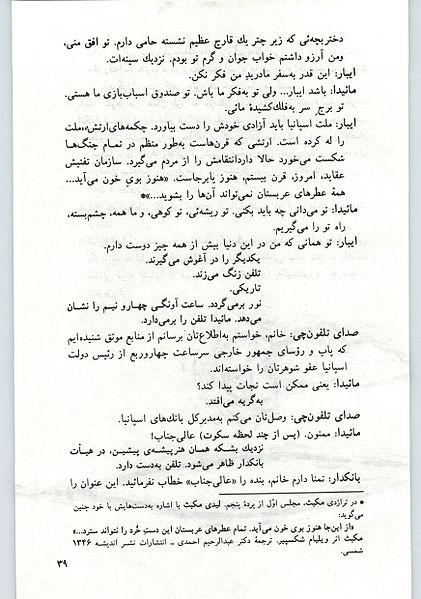 دختربچه‌ئی که زیر چتر یك قارچ عظیم نشسته حامی دارم. تو افق منی،
ومن آرزو داشتم خواب جوان و گرم تو بودم. نزدیك سینه‌ات.
ایبار: این قدر به‌سفر مادرید من فکر نکن.
مائیدا: باشد ایبار... ولی تو به‌فکر ما باش. تو صندوق اسباب‌بازی ما هستی.
تو برج سر به‌فلك‌کشیدهٔ مائی.
ایبار: ملت اسپانیا باید آزادی خودش را دست بیاورد. چکمه‌های‌ارتش،،ملت
را له کرده است. ارتشی که قرن‌هاست به‌طور منظم در تمام جنگ‌ها
شکست می‌خورد حالا داردانتقامش را از مردم می‌گیرد. سازمان تفتیش
عقاید، امروز، قرن بیستم، هنوز پابرجاست. «هنوز بوی خون می‌آید...
همهٔ عطرهای عربستان نمی‌تواند آن‌ها را بشوید...»*
مائیدا: تو می‌دانی چه باید بکنی. تو ریشه‌ئی، تو کوهی، و ما همه، چشم‌بسته،
راه تو را می‌گیریم.
ایبار: تو همانی که من در این دنیا بیش از همه چیز دوست دارم.
یکدیگر را در آغوش می‌گیرند.
تلفن زنگ می‌زند.
تاریکی.
نور برمی‌گردد. ساعت آونگی چهارو نیم را نشان
می‌دهد. مائیدا تلفن را برمی‌دارد.
صدای تلفون‌چی: خانم، خواستم به‌اطلاع‌تان برسانم از منابع موثق شنیده‌ایم
که پاپ و رؤسای جمهور خارجی سرساعت چهاروربع از رئیس دولت
اسپانیا عفو شوهرتان را خواسته‌اند.
مائیدا: یعنی ممکن است نجات پیدا کند؟
به‌گریه می‌افتد.
صدای تلفون‌چی: وصل‌تان می‌کنم به‌مدیرکل بانك‌های اسپانیا.
مائیدا: ممنون. (پس از چند لحظه سکوت) عالی‌جناب!
نزدیك بشکه همان هنرپیشه‌ی پیشین، در هیأت
بانکدار ظاهر می‌شود. تلفن به‌دست دارد.
بانکدار: تمنا دارم خانم، بنده را «عالی‌جناب» خطاب نفرمائید. این عنوان را
* در تراژدی مکبث، مجلس اوّل از پردهٔ پنجم. لیدی مکبث با اشاره به‌دست‌هایش با خود چنین
می‌گوید:
«از این‌جا هنوز بوی خون می‌آید. تمام عطرهای عربستان این دست خُرد را نتواند سترد...»
مکبث اثر ویلیام شکسپیر. ترجمهٔ دکتر عبدالرحیم احمدی ــ انتشارات نشر اندیشه ۱۳۴۶
شمسی.
۳۹